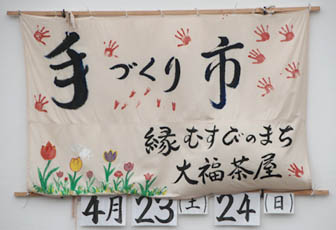 手づくり市
縁むすびのまち
大福茶屋
4月 23(土) 24(日)